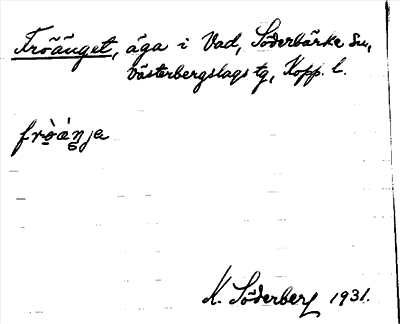 Fröänget, äga i Vad, Söderbärke sn,
Västerbergslags tg, Kopp. l.
K. Söderberg 1931.